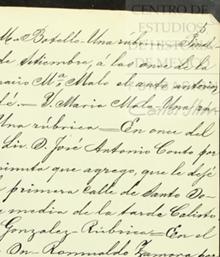 M. Botello - Una rúbrica
de Setiembre, á las once de la
nario Mª. Malo el auto anterior,
fé. - J. Maria Malo - Una rú
Una rúbrica. - En once del
Lic. D. José Antonio Couto por
que agrego, que le dejé
primera Calle de Santo Do-
media de la tarde Calisto
Gonzalez - Rúbrica - En el
Dn. Romualdo Zamora por
CENTRO DE
ESTUDIOS
DE